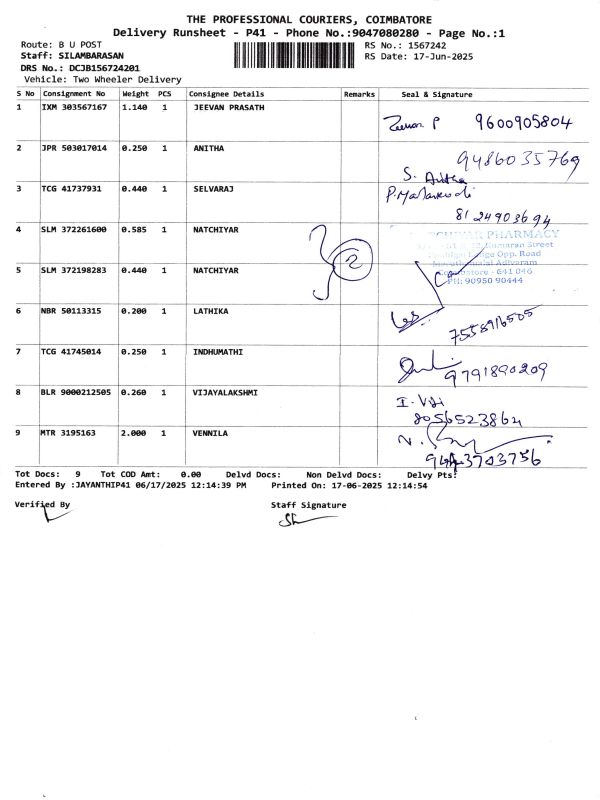 THE PROFESSIONAL COURIERS, COIMBATORE
Delivery Runsheet - P41 - Phone No.:9047080280 - Page No.:1
Route: B U POST
RS No.: 1567242
Staff: SILAMBARASAN
RS Date: 17-Jun-2025
DRS No.: DCJB156724201
Vehicle: Two Wheeler Delivery
S No Consignment No Weight PCS Consignee Details Remarks Seal & Signature
1 IXM 303567167 1.140 1 JEEVAN PRASATH
Jeevan P 9600905804
2 JPR 503017014 0.250 1 ANITHA
9486035769
S. Anitha
3 TCG 41737931 0.440 1 SELVARAJ
8124903694
4 SLM 372261600 0.585 1 NATCHIYAR
PHARMACY
Street
Opp. Road
Adivaram
Coimbatore - 641 046
PH: 90950 90444
2
5 SLM 372198283 0.440 1 NATCHIYAR
6 NBR 50113315 0.200 1 LATHIKA
7558916505
7 TCG 41745014 0.250 1 INDHUMATHI
9791890209
8 BLR 9000212505 0.260 1 VIJAYALAKSHMI
I. Viji
8056523864
9 MTR 3195163 2.000 1 VENNILA
Tot Docs: 9 Tot COD Amt: 0.00 Delvd Docs: Non Delvd Docs: Delvy Pts:
Entered By :JAYANTHIP41 06/17/2025 12:14:39 PM Printed On: 17-06-2025 12:14:54
Verified By Staff Signature